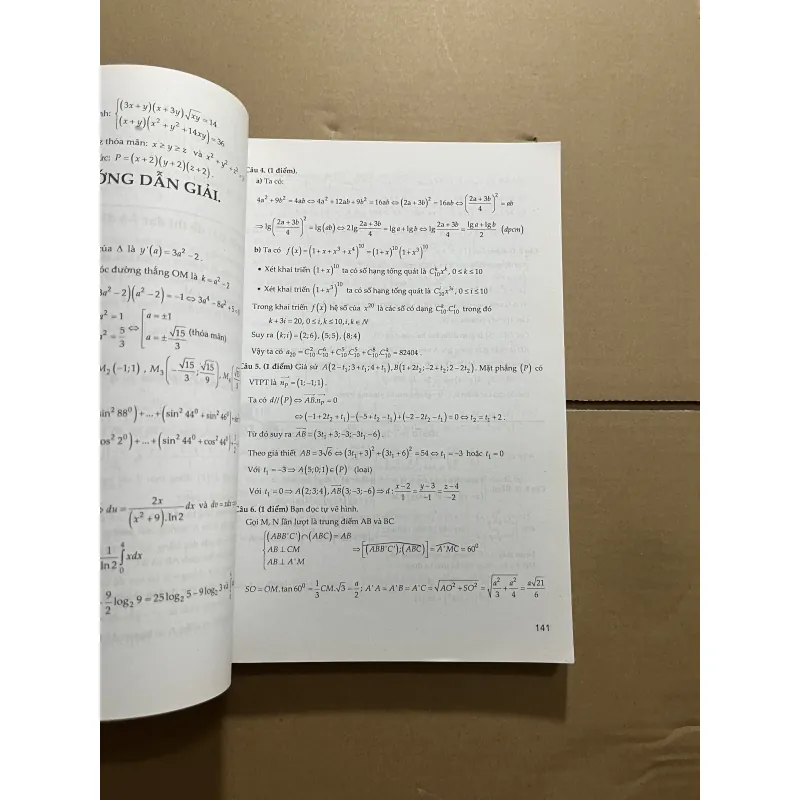 nh: {(3x+y)(x+3y)√xy=14
(x+y)(x²+y²+14xy)=36
thỏa mãn: x≥y≥z và x²+y²+z²
ức: P=(x+2)(y+2)(z+2).
ỚNG DẪN GIẢI.
của Δ là y'(a)=3a²-2.
óc đường thẳng OM là k=a²-2
3a²-2)(a²-2)=-1⇔3a⁴-8a²+5=
²=1
²=5/3 ⇔ [a=±1
a=±√15/3 (thỏa mãn)
M₂(-1;1), M₃(-√15/3;√15/9),
sin²88⁰)+...+(sin²44⁰+sin²46⁰)
cos²2⁰)+...+(sin²44⁰+cos²44⁰)
du=2x/((x²+9).ln2)dx và
1/ln2 ∫₀⁴xdx
9/2 log₂9=25log₂5-9log₂3
Câu 4. (1 điểm).
a) Ta có:
4a²+9b²=4ab⇔4a²+12ab+9b²=16ab⇔(2a+3b)²=16ab⇔((2a+3b)/4)²=ab
⇒lg((2a+3b)/4)²=lg(ab)⇔2lg(2a+3b)/4=lga+lgb⇔lg(2a+3b)/4=(lga+lgb)/2 (đpcm)
b) Ta có f(x)=(1+x+x³+x⁴)¹⁰=(1+x)¹⁰(1+x³)¹⁰
• Xét khai triển (1+x)¹⁰ ta có số hạng tổng quát là C₁₀ᵏxᵏ,0≤k≤10
• Xét khai triển (1+x³)¹⁰ ta có số hạng tổng quát là C₁₀ⁱx³ⁱ,0≤i≤10
Trong khai triển f(x) hệ số của x²⁰ là các số có dạng C₁₀ᵏ.C₁₀ⁱ trong đó
k+3i=20,0≤i,k≤10,i,k∈N
Suy ra (k;i)=(2;6),(5;5),(8;4)
Vậy ta có a₂₀=C₁₀².C₁₀⁶+C₁₀⁵.C₁₀⁵+C₁₀⁸.C₁₀⁴=82404.
Câu 5. (1 điểm) Giả sử A(2-t₁;3+t₁;4+t₁),B(1+2t₂;-2+t₂;2-2t₂). Mặt phẳng (P) có
VTPT là n_P=(1;-1;1).
Ta có d//(P)⇔AB.n_P=0
⇔(-1+2t₂+t₁)-(-5+t₂-t₁)+(-2-2t₂-t₁)=0⇔t₂=t₁+2.
Từ đó suy ra AB=(3t₁+3;-3;-3t₁-6).
Theo giả thiết AB=3√6⇔(3t₁+3)²+(3t₁+6)²=54⇔t₁=-3 hoặc t₁=0
Với t₁=-3⇒A(5;0;1)∈(P) (loại)
Với t₁=0⇒A(2;3;4),AB(3;-3;-6)⇒d:(x-2)/1=(y-3)/-1=(z-4)/-2
Câu 6. (1 điểm) Bạn đọc tự vẽ hình.
Gọi M, N lần lượt là trung điểm AB và BC
{(ABB'C')∩(ABC)=AB
AB⊥CM ⇒[(ABB'C');(ABC)]=A'MC=60⁰
AB⊥A'M
SO=OM.tan60⁰=1/3 CM.√3=a/2;A'A=A'B=A'C=√(AO²+SO²)=√(a²/3+a²/4)=a√21/6
141